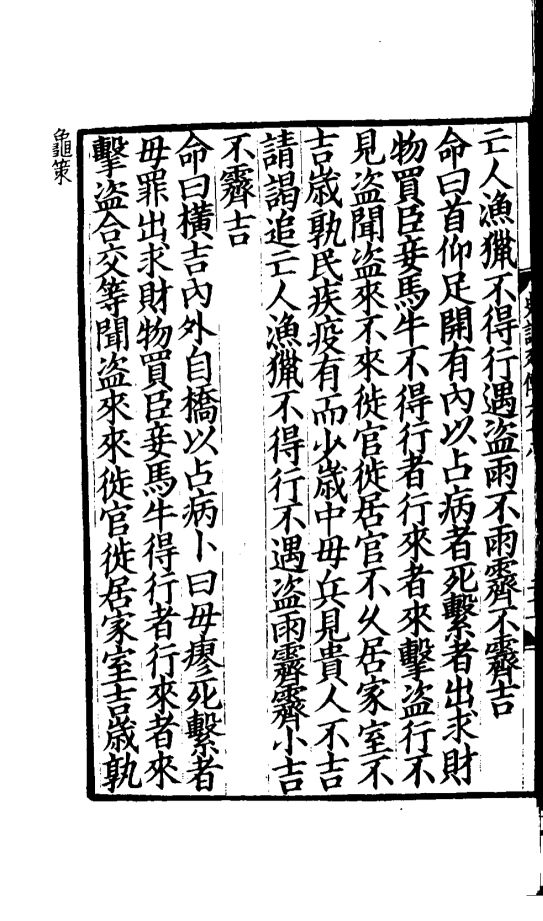 亡人漁獵不得行遇盜雨不雨霽不霽吉
命曰首仰足開有內以占病者死繫者出求財
物買臣妾馬牛不得行者行來者來擊盜行不
見盜聞盜來不來徙官徙居官不久居家室不
吉歲孰民疾疫有而少歲中毋兵見貴人不吉
請謁追亡人漁獵不得行不遇盜雨霽霽小吉
不霽吉
命曰橫吉內外自橋以占病卜曰毋瘳死繫者
毋罪出求財物買臣妾馬牛得行者行來者來
擊盜合交等聞盜來來徙官徙居家室吉歲孰
龜策